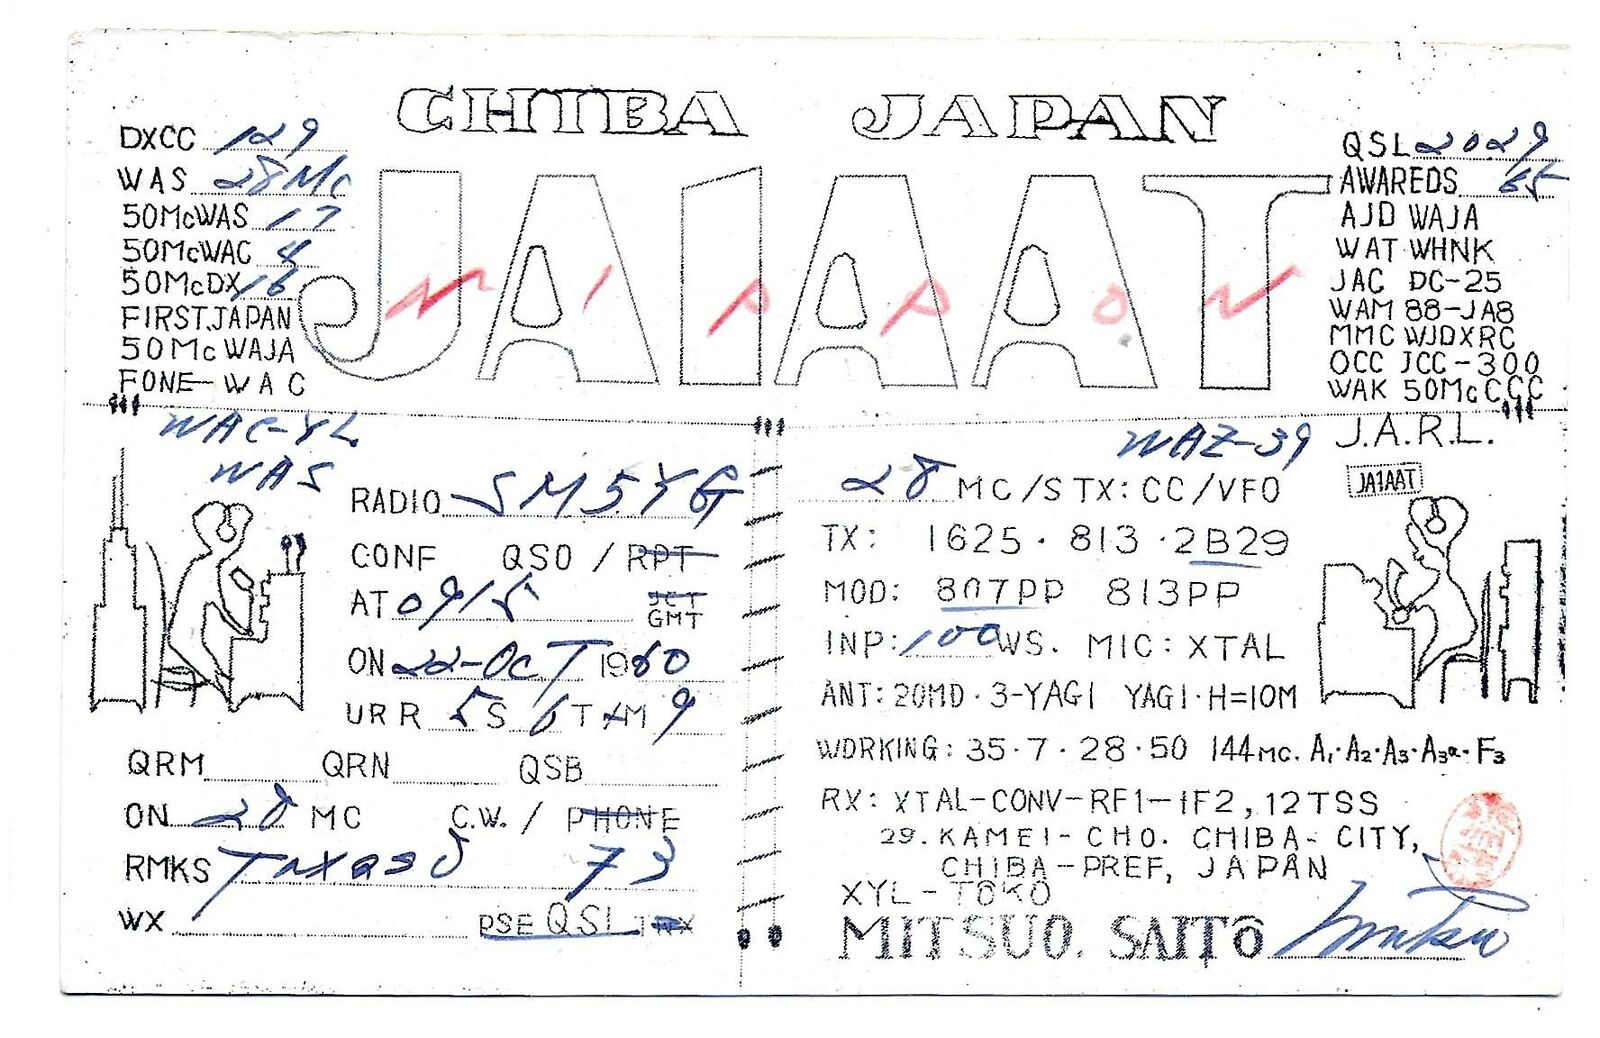 CHIBA JAPAN
JA1AAT
NIPPON
DXCC 129
WAS 28Mc
50McWAS 17
50McWAC 4
50McDX 16
FIRST.JAPAN
50Mc WAJA
FONE-WAC
WAC-YL
WAS
QSL 2029
AWAREDS 65
AJD WAJA
WAT WHNK
JAC DC-25
WAM 88-JA8
MMC WJDXRC
OCC JCC-300
WAK 50McCCC
J.A.R.L.
WAZ-39
RADIO SM5YG
CONF QSO / RPT
AT 0915 JCT
GMT
ON 22-OCT 1960
UR R 5 S 6 T M 9
QRM QRN QSB
ON 28 MC C.W. / PHONE
RMKS Tnx QSO 73
WX PSE QSL TNX
28 MC/S TX: CC/VFO
TX: 1625 · 813 · 2B29
MOD: 807PP 813PP
INP: 100WS. MIC: XTAL
ANT: 20MD · 3-YAGI YAGI·H=10M
WORKING: 35·7·28·50 144MC. A1·A2·A3·A3a·F3
RX: XTAL-CONV-RF1-IF2, 12TSS
29. KAMEI-CHO. CHIBA-CITY,
CHIBA-PREF, JAPAN
XYL-TOKO
MITSUO. SAITO Mitsuo
JA1AAT